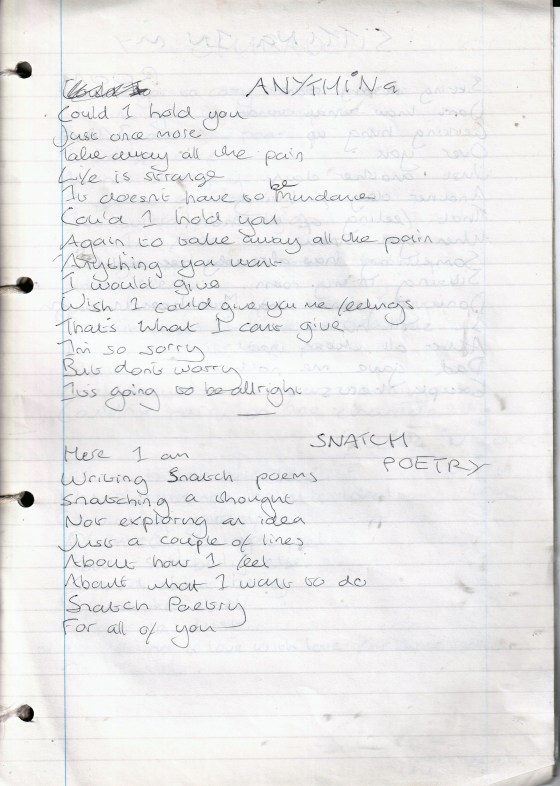 ANYTHING
Could I hold you
Just once more
Take away all the pain
Life is strange
It doesn't have to be Mundane
Could I hold you
Again to take away all the pain
Anything you want
I would give
Wish I could give you me feelings
That's what I cant give
Im so sorry
But don't worry
It's going to be allright
SNATCH
POETRY
Here I am
Writing Snatch poems
Snatching a thought
Not exploring an idea
Just a couple of lines
About how I feel
About what I want to do
Snatch Poetry
For all of you